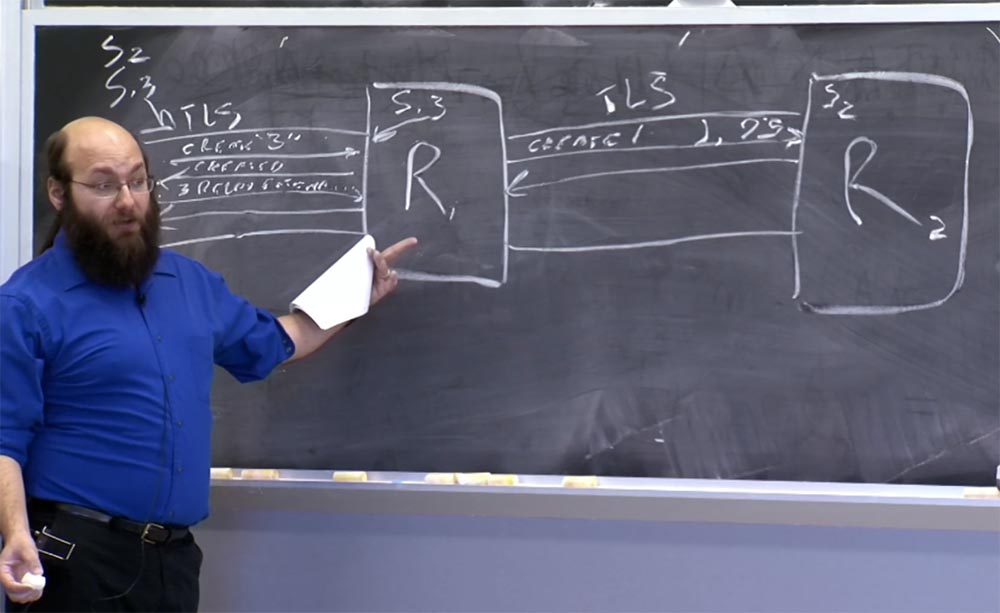 S2
S,3
TLS
CREATE "3"
CREATED
3 RELAY EXTEND...
S,3
R1
TLS
CREATE
S2
R2